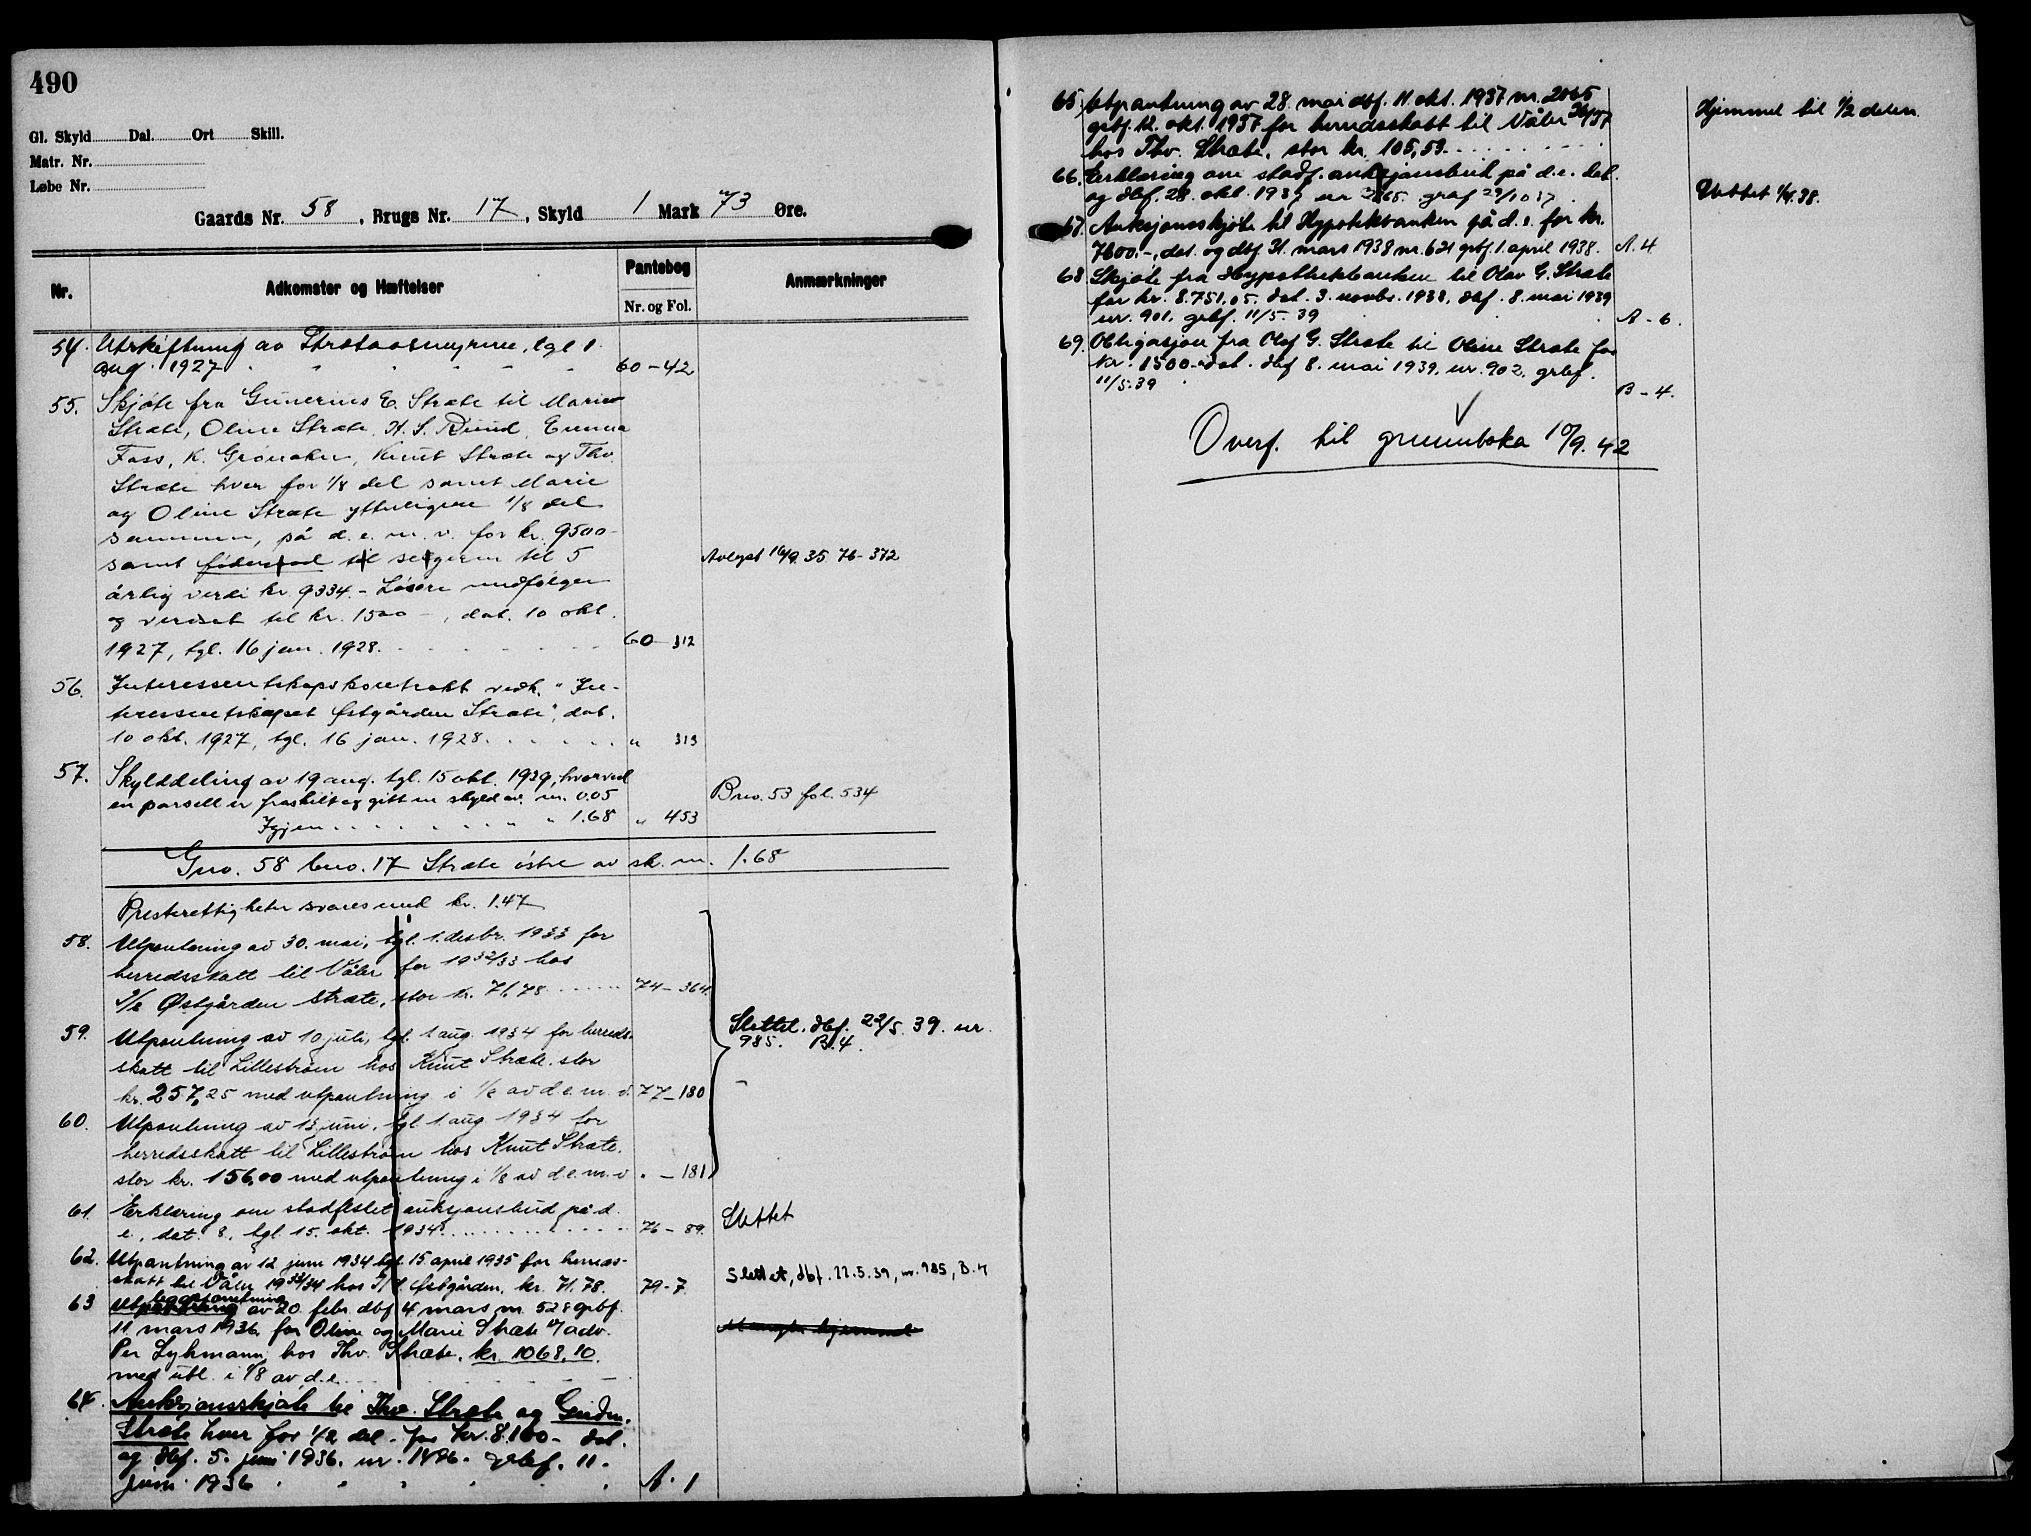 490
Gl. Skyld Dal. Ort Skill.
Matr. Nr.
Løbe Nr.
Gaards Nr. 58, Brugs Nr. 17, Skyld 1 Mark 73 Øre.
Nr. Adkomster og Hæftelser Pantebog Nr. og Fol. Anmærkninger
54. Utskiftning av Strætaasmyrene, tgl 1
aug. 1927 60-42
55. Skjøte fra Gunerius E. Stræte til Marie
Stræte, Oline Stræte, H. S. Rund, Emma
Foss, K. Grønaker, Knut Stræte og Thv.
Stræte hver for 1/8 del samt Marie
og Oline Stræte ytterligere 1/8 del
sammen, på d. e. m. v. for kr. 9500-
samt føderåd til selgeren til 5 Avlyst 16/9.35 76-372
årlig verdi kr. 9334.- Løsøre medfølger
og verdset til kr. 1500-, dat. 10 okt.
1927, tgl. 16 jan. 1928. 60-312
56. Interessentskapskontrakt vedk. "In-
teressentskapet Østgården Stræte", dat.
10 okt. 1927, tgl. 16 jan. 1928. " 313
57. Skylddeling av 19 aug. tgl. 15 okt. 1929, hvorved
en parsell er fraskilt og gitt en skyld av m. 0.05 Bno. 53 fol. 534
Igjen " " 1.68 " 453
Gno. 58 bno. 17 Stræte østre av sk. m. 1.68
Presterettigheter svares med kr. 1.47
58. Utpantning av 30. mai, tgl. 1. desbr. 1933 for
herredsskatt til Våler for 1932/33 hos
I/S Østgården Stræte, stor kr. 71,78 74-364
59. Utpantning av 10 juli, tgl. 1 aug. 1934 for herreds- Slettet. dbf. 22/5. 39. nr.
985. B.4.
skatt til Lillestrøm hos Knut Stræte. stor
kr. 257,25 med utpantning i 1/8 av d.e.m.v. 77-180
60. Utpantning av 13 juni, tgl 1 aug. 1934 for
herredsskatt til Lillestrøm hos Knut Stræte.
stor kr. 156,00 med utpantning i 1/8 av d.e.m.v. " -181
61. Erklæring om stadfestet auksjonsbud på d.
e., dat. 8. tgl 15. okt. 1934. 76-89. Slettet
62. Utpantning av 12 juni 1934 tgl. 15 april 1935 for herreds-
skatt til Våler 1933/34 hos I/S Østgården, kr. 71.78. 79-7 Slettet, dbf. 22.5.39, nr. 985, B.4
63 Utpantning av 20. febr. dbf. 4 mars nr. 528 grbf.
11 mars 1936. for Oline og Marie Stræte v/adv.
Per Lykmann hos Thv. Stræte, kr. 1068,10.
med utl. i 1/8 av d.e.
64. Auksjonsskjøte til Thv. Stræte og Gudm.
Stræte hver for 1/2 del - for kr. 8.100- dat.
og dbf. 5. juni 1936. nr. 1486. grbf. 11.
juni 1936 A. 1
65. Utpantning av 28. mai dbf. 11. okt. 1937 nr. 2065 Hjemmel til 1/2 delen
grbf. 12. okt. 1937 for herredsskatt til Våler 36/37
hos Thv. Stræte. stor kr. 105,53.
66. Erklæring om stadf. auksjonsbud på d.e. dat.
og dbf. 28. okt. 1937 nr grbf 29/10 37. Slettet 1/4.38.
67. Auksjonsskjøte til Hypotekbanken på d. e. for kr.
7600.-, dat. og dbf 31. mars 1938 nr. 621 grbf. 1. april 1938. A. 4
68 Skjøte fra Hypotekbanken til Olav G. Stræte
for kr. 8.751,05. dat. 3. novbr. 1938, dbf. 8. mai 1939
nr. 901. grbf. 11/5. 39 A-6.
69. Obligasjon fra Olaf G. Stræte til Oline Stræte for
kr. 1500.- dat. dbf 8. mai 1939. nr. 902. grbf.
11/5.39 B-4.
Overf. til grunnboka 10/9. 42